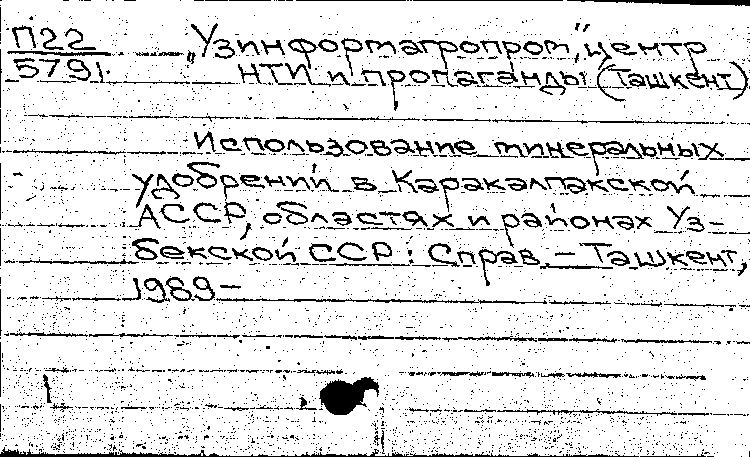 П22
5791.
„Узинформагропром,“ центр
НТИ и пропаганды (Ташкент)
Использование минеральных
удобрений в Каракалпакской
АССР, областях и районах Уз-
бекской ССР : Справ. — Ташкент,
1989 —